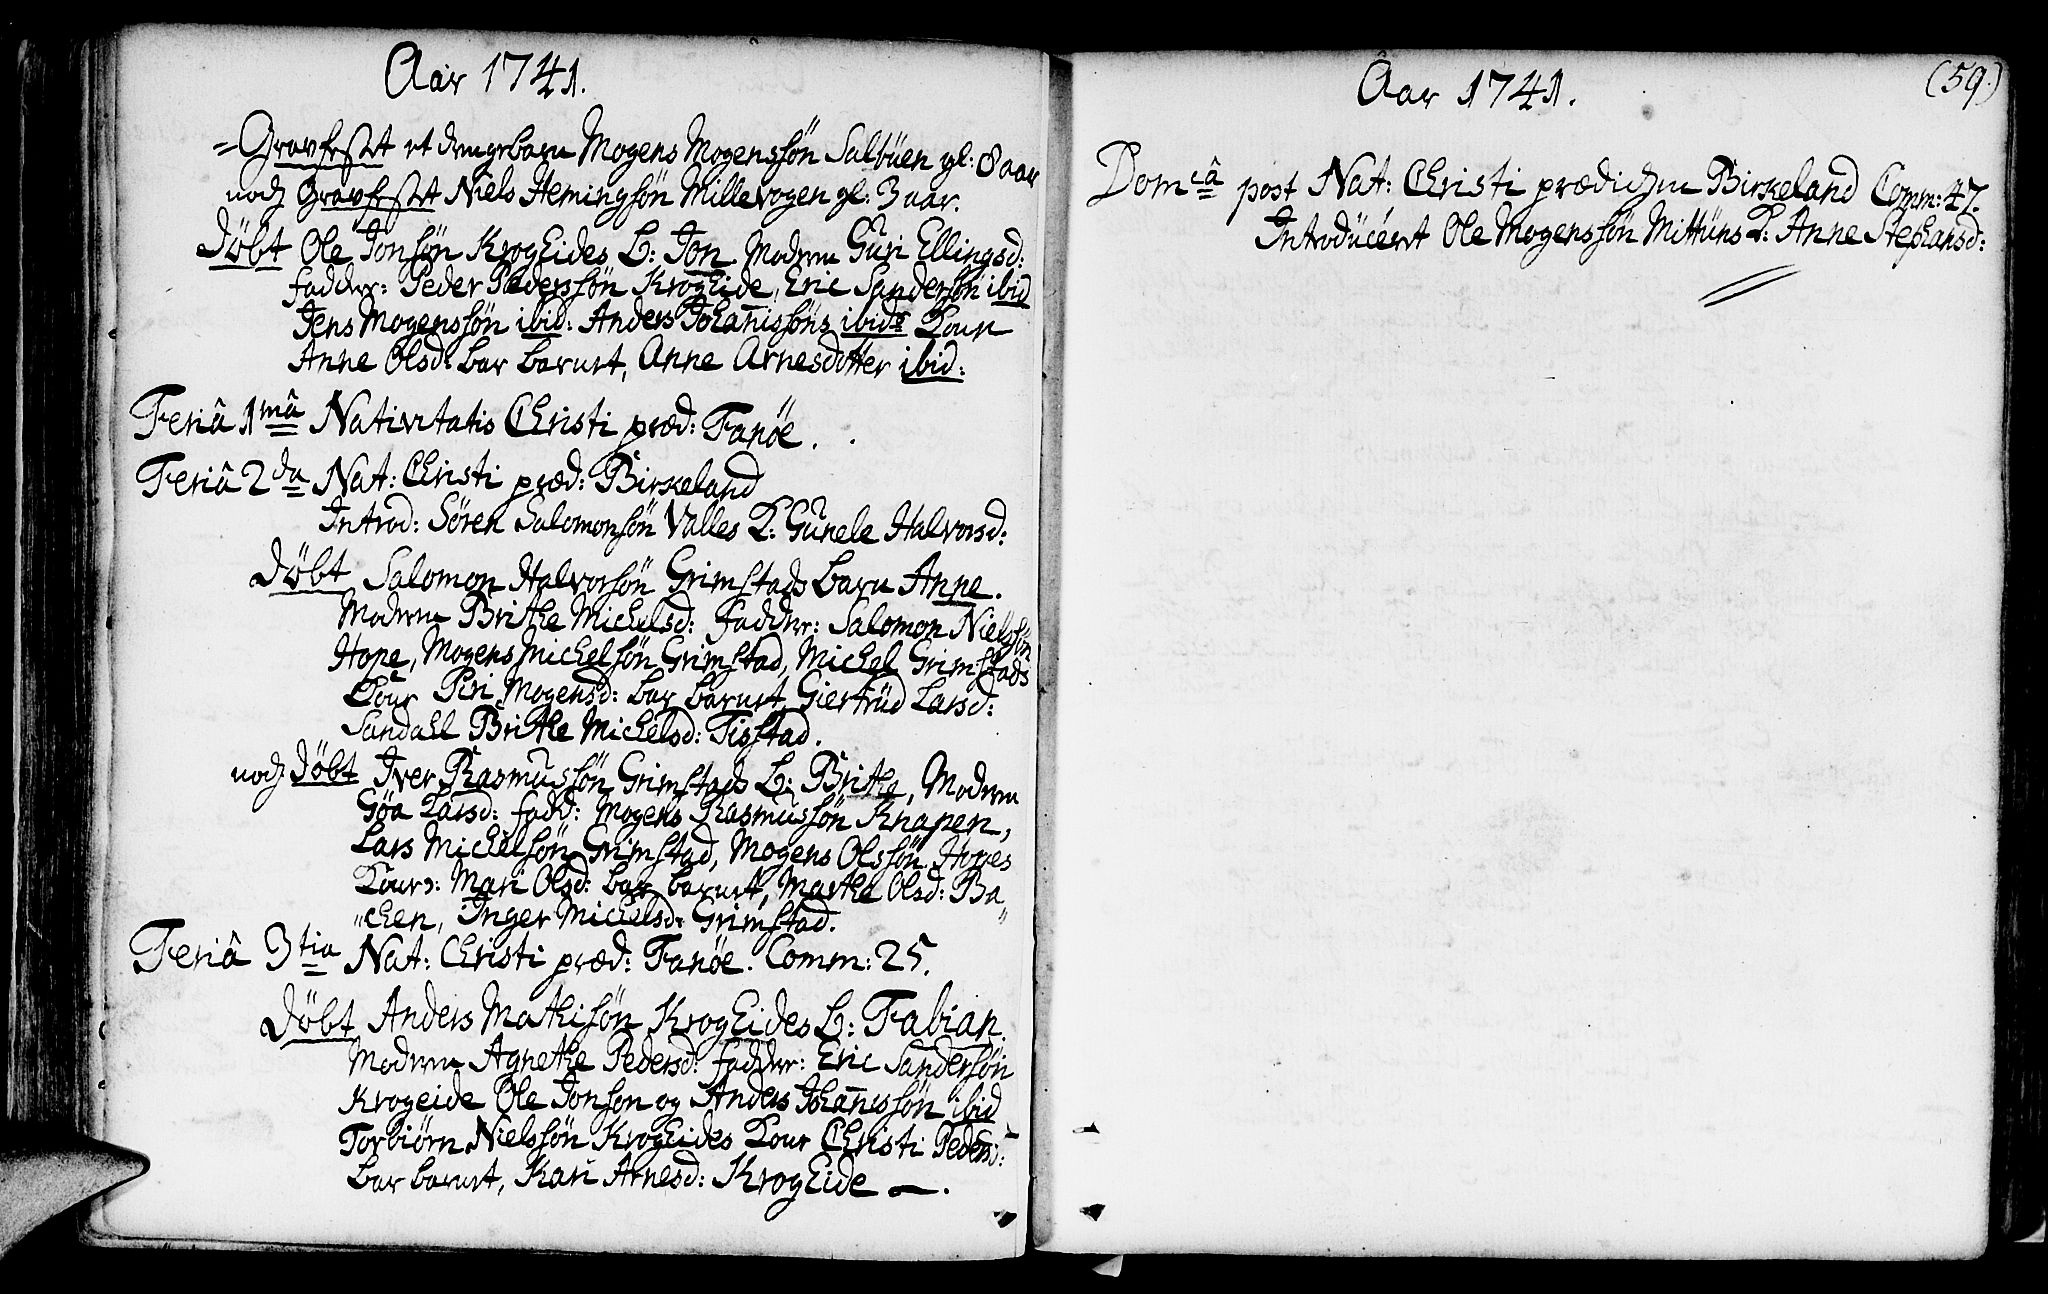 Aar 1741.
Gravfestet et drengebarn Mogens Mogenssön Salbüen gl: 8 aar
noch Gravfestet Niels Hemingsön Millevogen gl: 3 aar.
Döbt Ole Jonsön KrogEides b: Jon Modren Guri Ellingsd:
fadder: Peder Pederssön KrogEide, Eric Sandersön ibid
Jens Mogenssön ibid: Anders Johanissöns ibid: Kone
Anne Olsd: bar barnet, Anne Arnesdotter ibid:
Feriâ 1mâ Nativitatis Christi præd: Fanöe.
Feriâ 2da Nat: Christi præd: Birkeland
Introd: Sören Salomonsön Valles K: Gunele Halvorsd:
Döbt Salomon Halvorsön Grimstads barn Anne.
Modren Brithe Michelsd: fadder: Salomon Nielssön
Hope, Mogens Michelsön Grimstad, Michel Grimstads
Kone Piri Mogensd: bar barnet, Giertrüd Larsd:
Sandahl Brithe Michelsd: Tisstad.
noch Döbt Iver Rasmussön Grimstads b: Brithe, Modren
Göa Larsd: fadd: Mogens Rasmussön Knapen,
Lars Michelsön Grimstad, Mogens Olssön Hopes
Kone: Mari Olsd: bar barnet, Marthe Olsd: Ba"
"chen, Inger Michelsd: Grimstad.
Feriâ 3tia Nat: Christi præd: Fanöe. Comm: 25.
Döbt Anders Mathisön KrogEides b: Fabian.
Modren Agnethe Pedersd: fadder: Eric Sandersön
Krogeide Ole Jonson og Anders Johanissön ibid
Torbiörn Nielssön KrogEides Kone Christi Pedersd:
bar barnet, Kari Arnesd: KrogEide.
Aar 1741.
(59.)
Domcâ post Nat: Christi prædichen Birkeland Comm: 47.
Introducert Ole Mogenssön Mittüns K: Anne Stephansd: